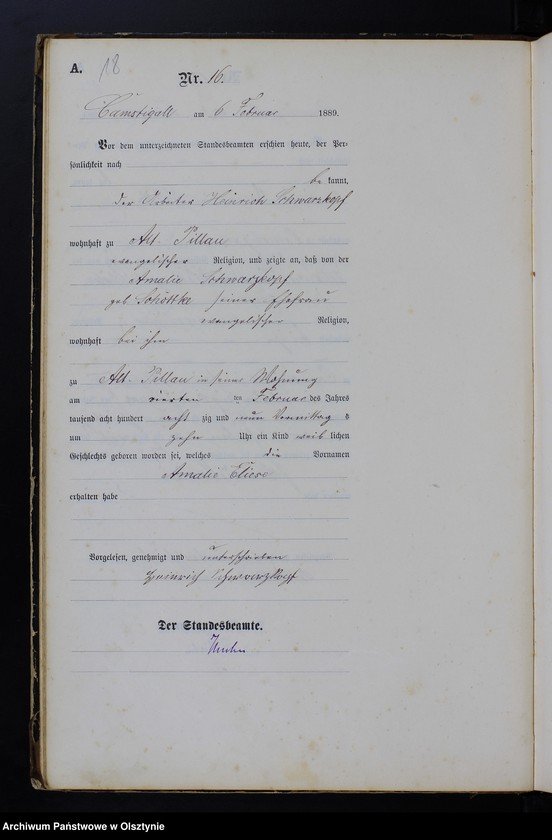 A. 18
Nr. 16.
Camstigall am 6 Februar 1889.
Vor dem unterzeichneten Standesbeamten erschien heute, der Per-
sönlichkeit nach
be kannt,
der Arbeiter Heinrich Schwarzkopf
wohnhaft zu Alt-Pillau
evangelischer Religion, und zeigte an, daß von der
Amalie Schwarzkopf
geb Schöttke seiner Ehefrau
evangelischer Religion,
wohnhaft bei ihm
zu Alt-Pillau in seiner Wohnung
am vierten ten Februar des Jahres
tausend acht hundert acht zig und neun Vormittag s
um zehn Uhr ein Kind weib lichen
Geschlechts geboren worden sei, welches die Vornamen
Amalie Eliese
erhalten habe
Vorgelesen, genehmigt und unterschrieben
Heinrich Schwarzkopf
Der Standesbeamte.
Archiwum Państwowe w Olsztynie